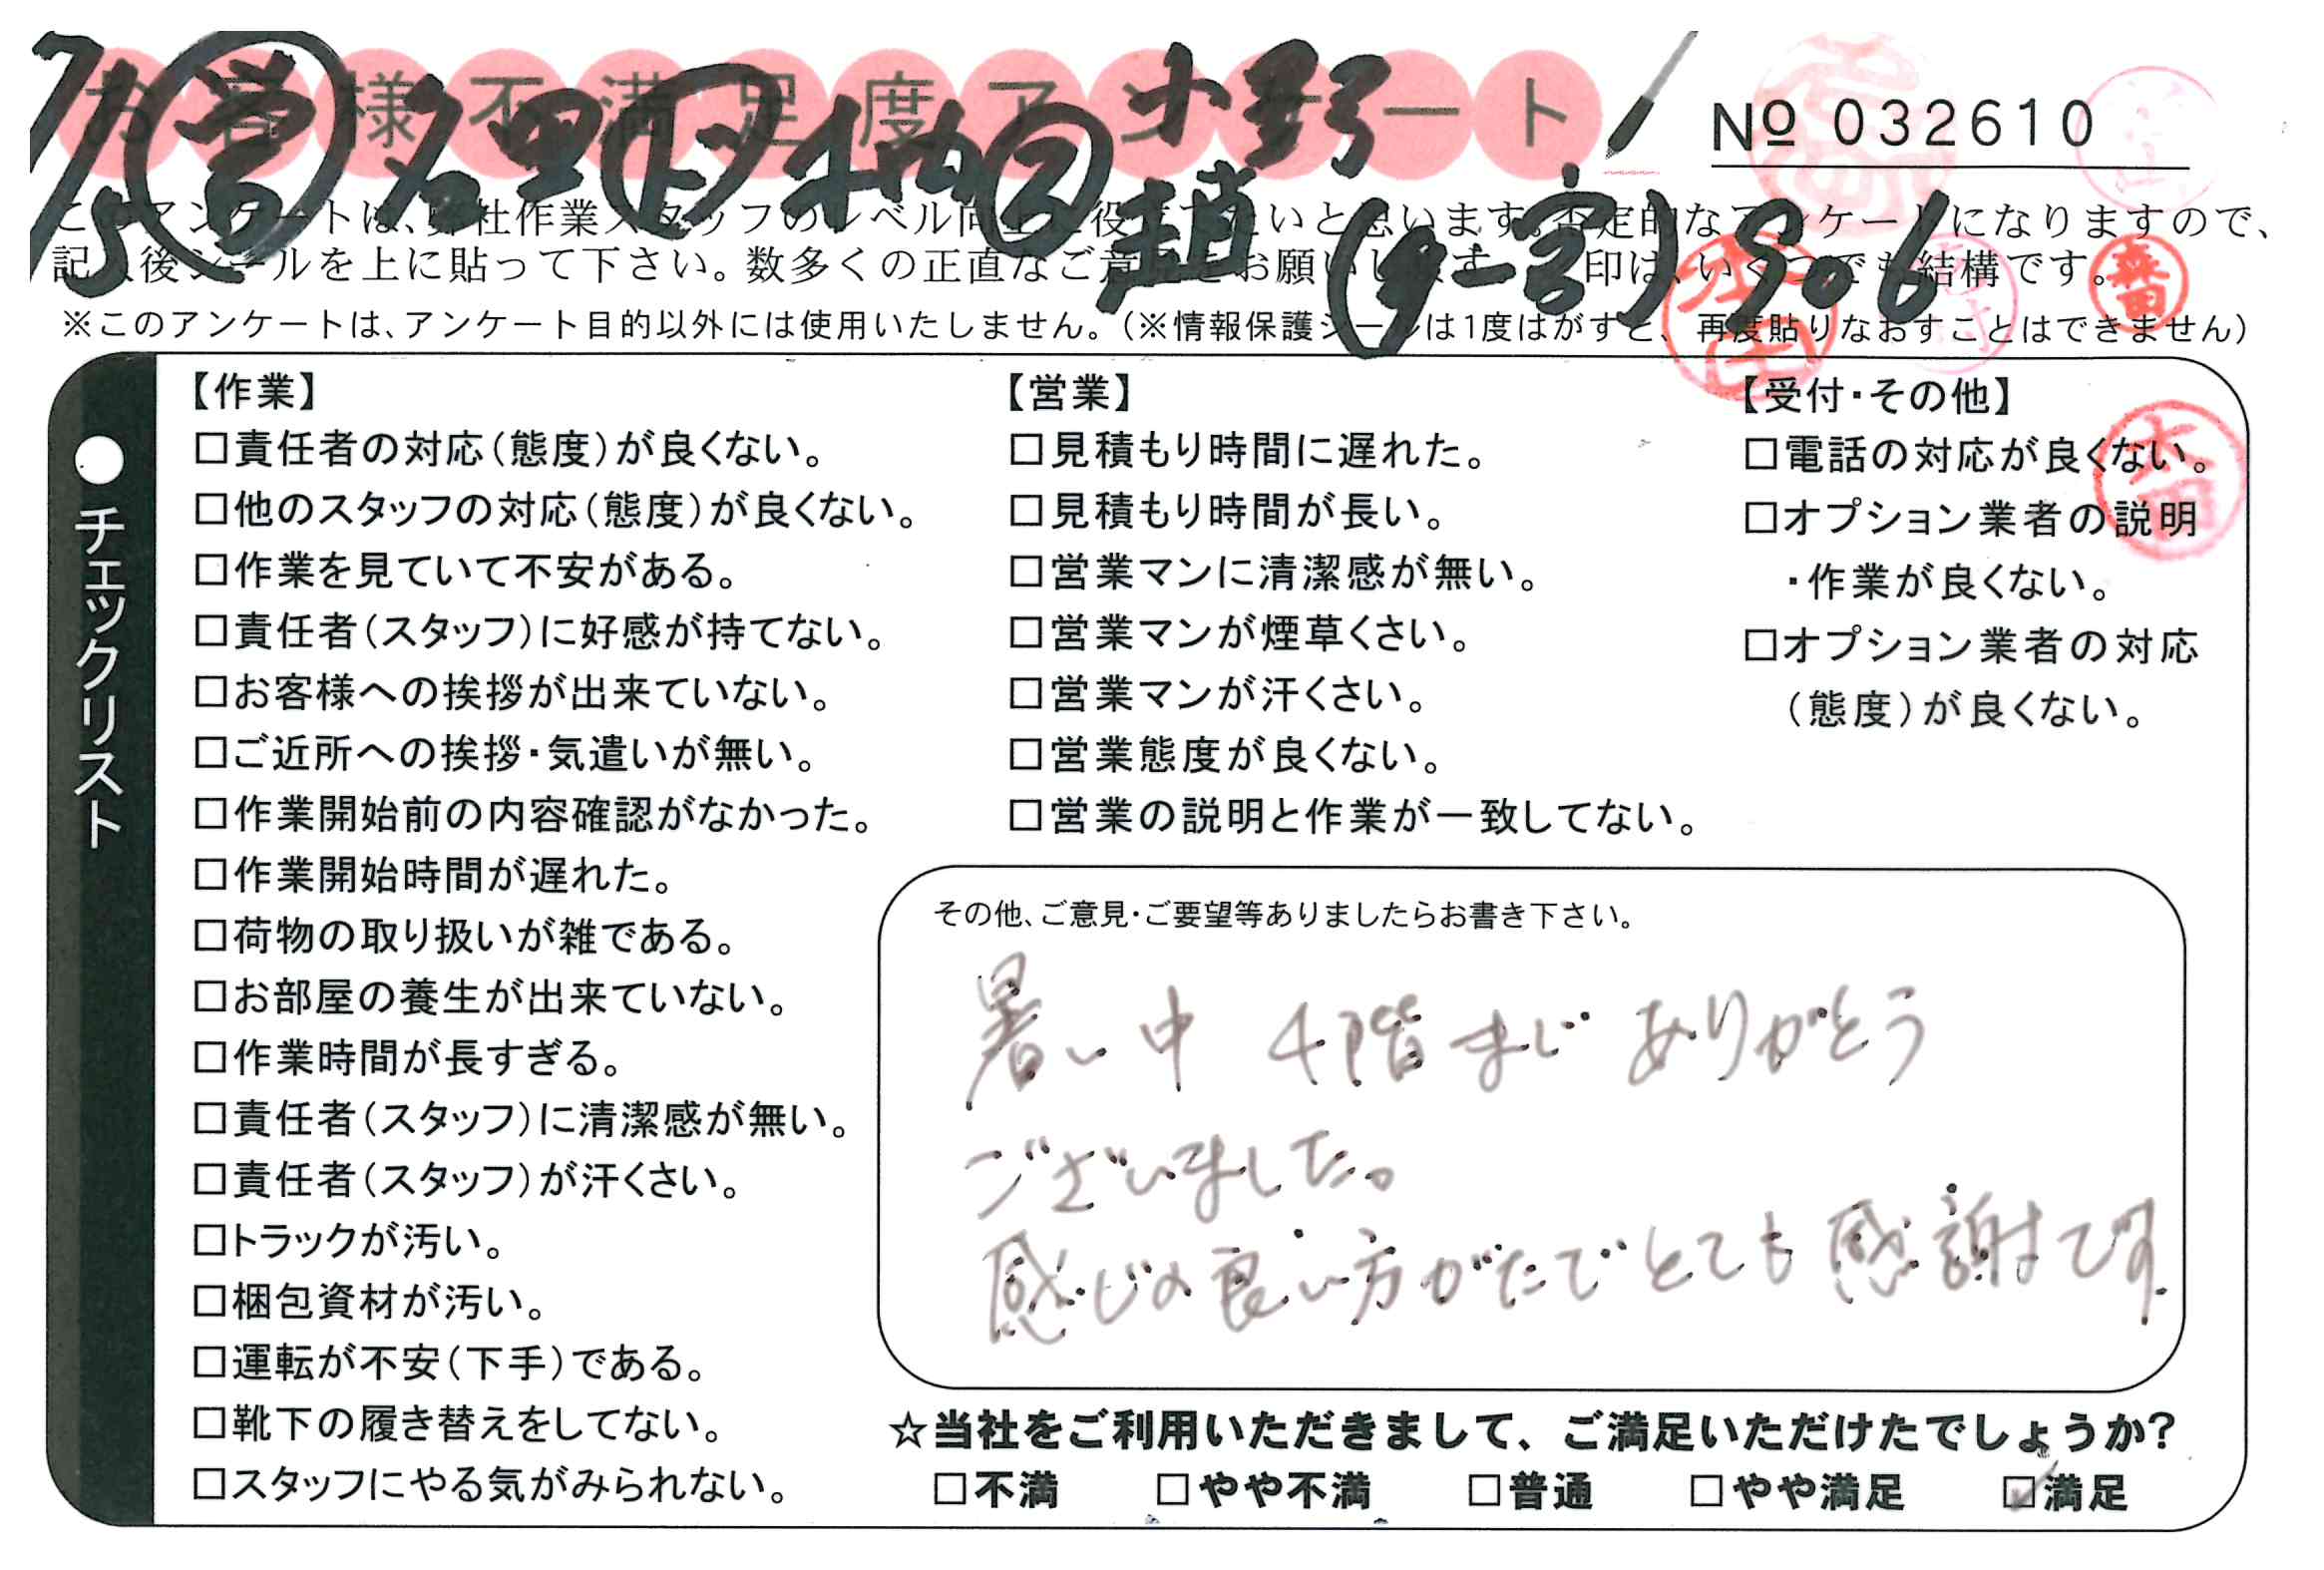 お客様不満足度アンケート
№ 032610
7/15 営 名里 ド 木内 2 小野
趙 (タ-宮) S06
このアンケートは、弊社作業スタッフのレベル向上に役立てたいと思います。否定的なアンケートになりますので、
記入後シールを上に貼って下さい。数多くの正直なご意見をお願いします。 印は、いくつでも結構です。
※このアンケートは、アンケート目的以外には使用いたしません。（※情報保護シールは1度はがすと、再度貼りなおすことはできません）
森田
本田
●チェックリスト
【作業】
□責任者の対応（態度）が良くない。
□他のスタッフの対応（態度）が良くない。
□作業を見ていて不安がある。
□責任者（スタッフ）に好感が持てない。
□お客様への挨拶が出来ていない。
□ご近所への挨拶・気遣いが無い。
□作業開始前の内容確認がなかった。
□作業開始時間が遅れた。
□荷物の取り扱いが雑である。
□お部屋の養生が出来ていない。
□作業時間が長すぎる。
□責任者（スタッフ）に清潔感が無い。
□責任者（スタッフ）が汗くさい。
□トラックが汚い。
□梱包資材が汚い。
□運転が不安（下手）である。
□靴下の履き替えをしてない。
□スタッフにやる気がみられない。
【営業】
□見積もり時間に遅れた。
□見積もり時間が長い。
□営業マンに清潔感が無い。
□営業マンが煙草くさい。
□営業マンが汗くさい。
□営業態度が良くない。
□営業の説明と作業が一致してない。
【受付・その他】
□電話の対応が良くない。
□オプション業者の説明
・作業が良くない。
□オプション業者の対応
（態度）が良くない。
その他、ご意見・ご要望等ありましたらお書き下さい。
暑い中 4階まで ありがとう
ございました。
感じの良い方がたでとても感謝です
☆当社をご利用いただきまして、ご満足いただけたでしょうか？
□不満 □やや不満 □普通 □やや満足 ☑満足